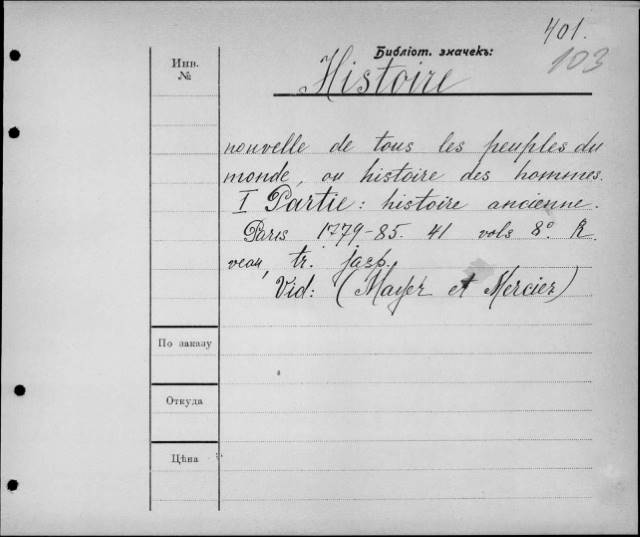 401.
Библіот. значекъ:
103
Инв.
№
Histoire
nouvelle de tous les peuples du
monde, ou histoire des hommes.
I Partie: histoire ancienne.
Paris 1779-85. 41 vols 8°. R.
veau, tr. jasp.
Vid: (Mayer et Mercier)
По заказу
Откуда
Цѣна